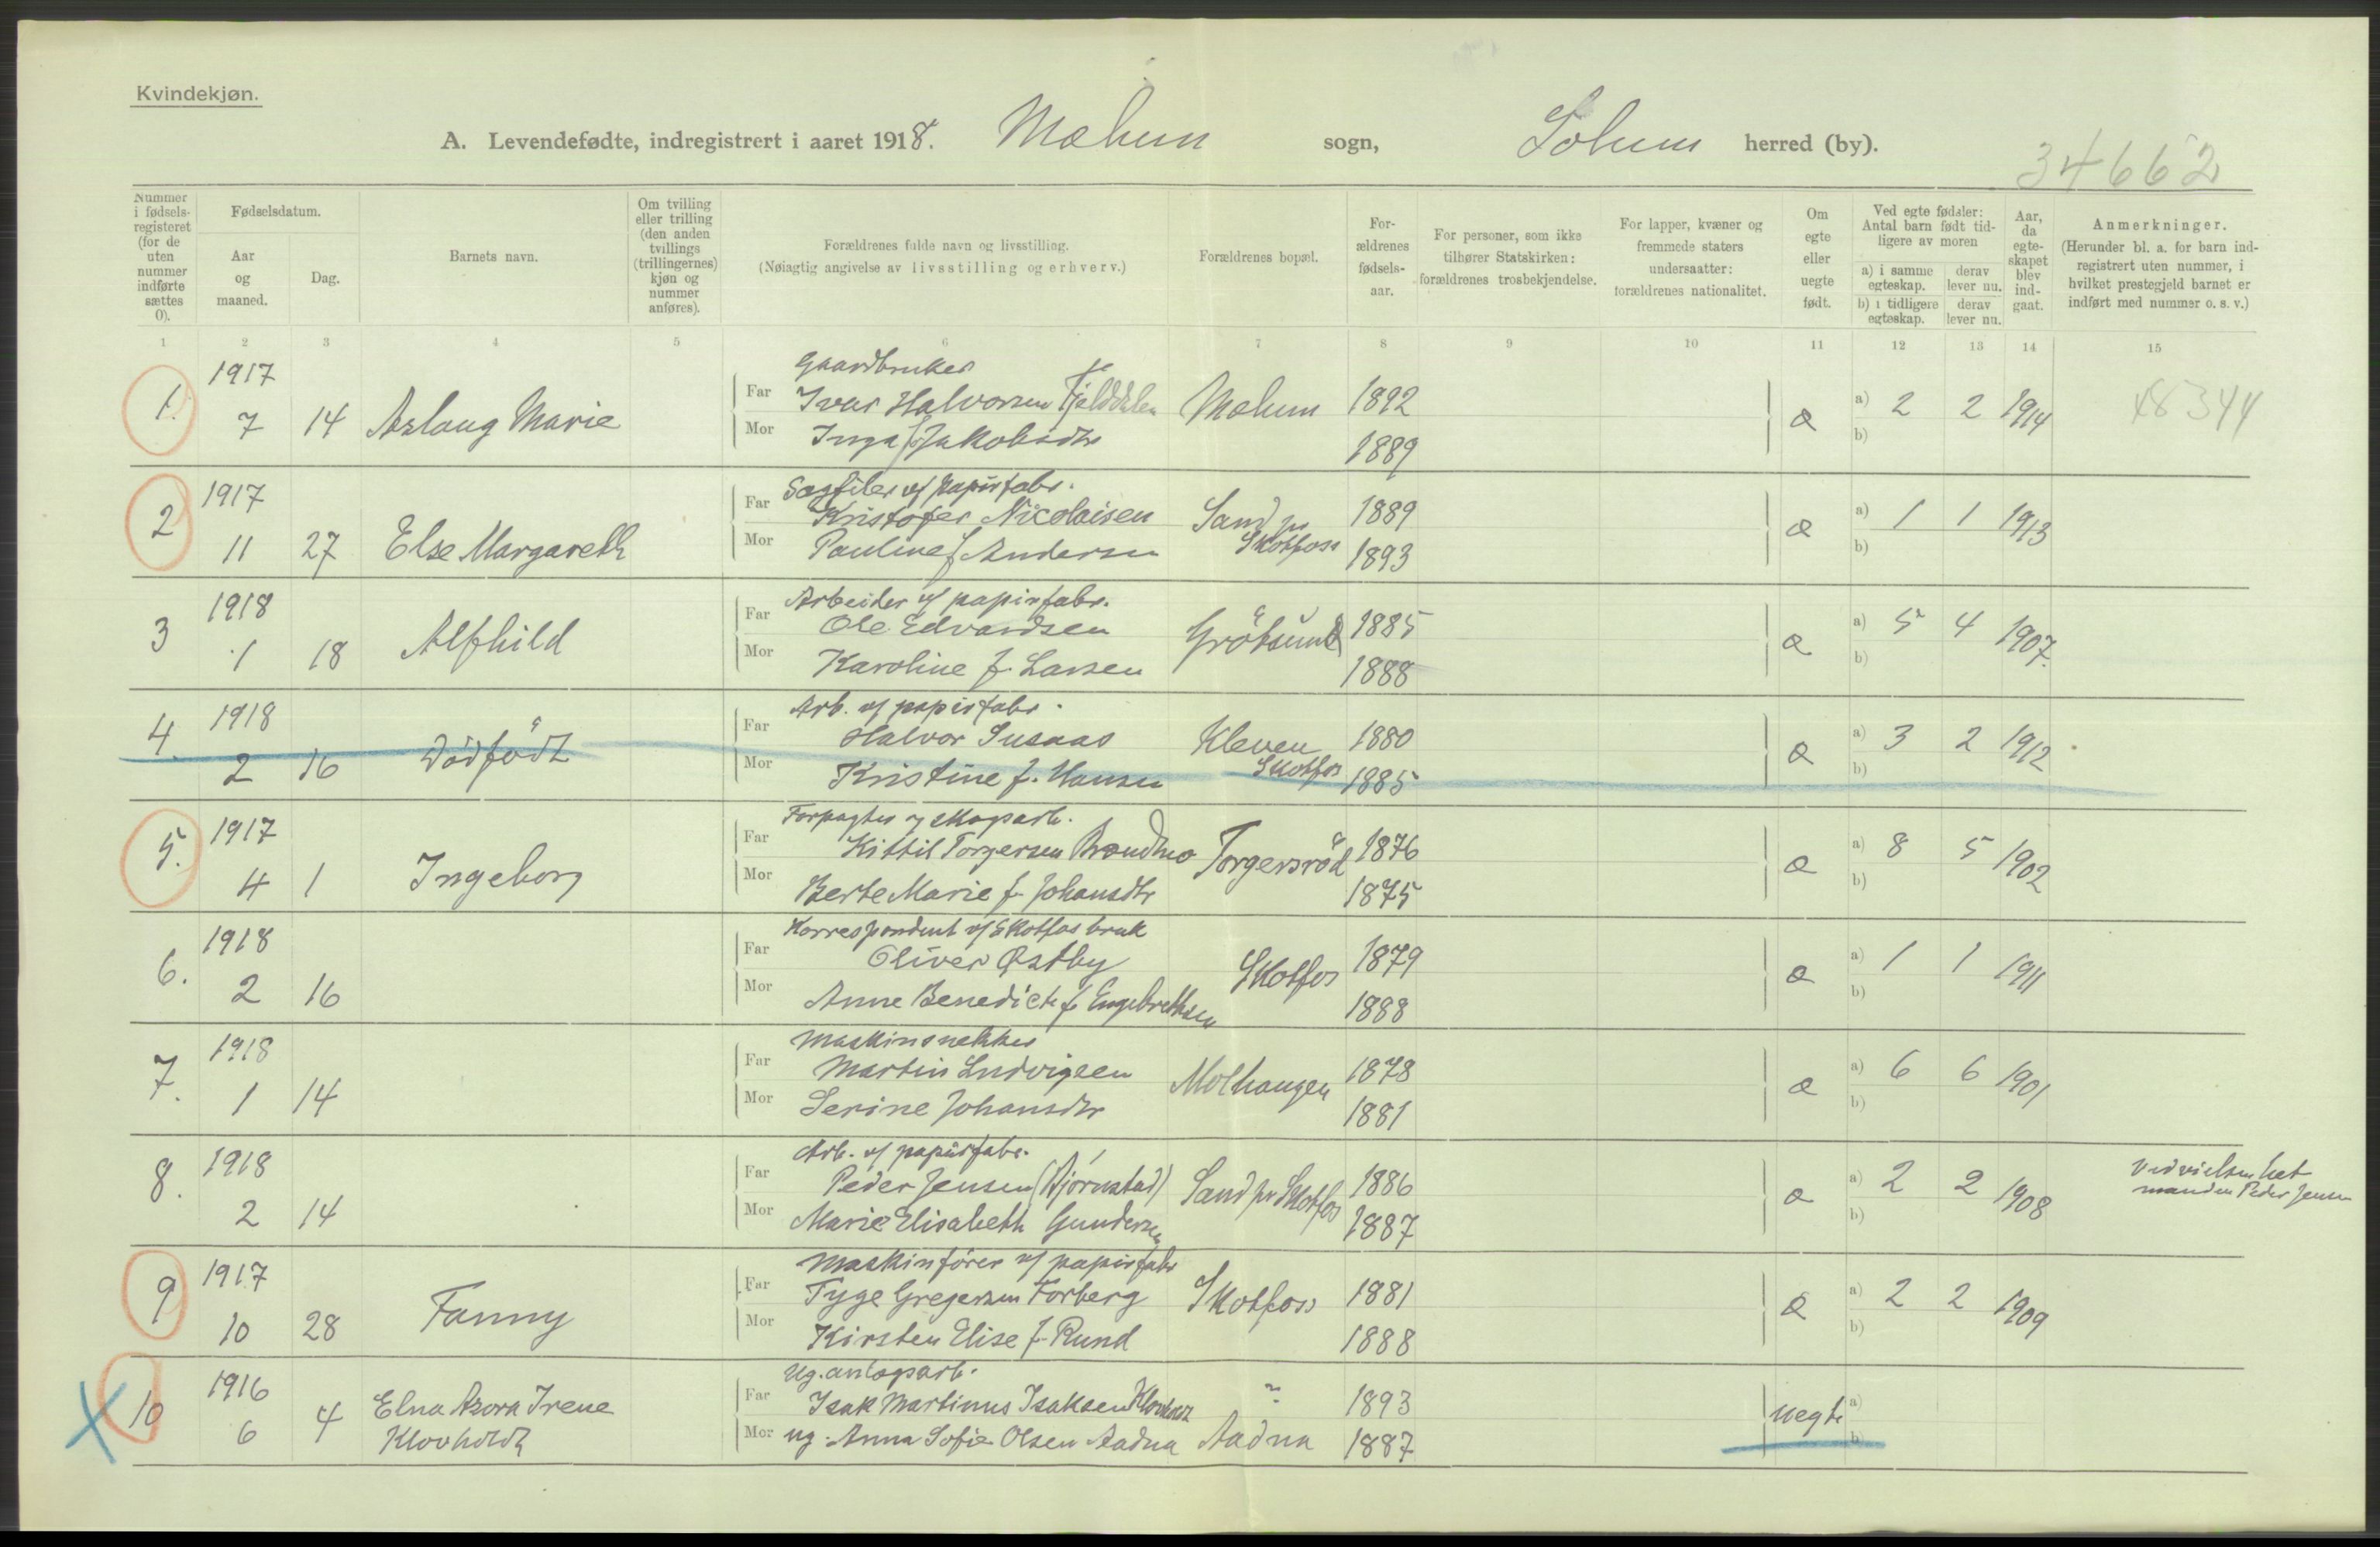 Kvindekjøn.
A. Levendefødte, indregistrert i aaret 1918. Melum sogn, Solum herred (by).
34662
Nummer i fødsels-registeret (for de uten nummer indførte sættes 0).
Fødselsdatum.
Aar og maaned.
Dag.
Barnets navn.
Om tvilling eller trilling (den anden tvillings (trillingernes) kjøn og nummer anføres).
Forældrenes fulde navn og livsstilling.
(Nøiagtig angivelse av livsstilling og erhverv.)
Forældrenes bopæl.
For-ældrenes fødsels-aar.
For personer, som ikke tilhører Statskirken: forældrenes trosbekjendelse.
For lapper, kvæner og fremmede staters undersaatter: forældrenes nationalitet.
Om egte eller uegte født.
Ved egte fødsler: Antal barn født tid-ligere av moren
a) i samme egteskap. derav lever nu.
b) i tidligere egteskap. derav lever nu.
Aar, da egte-skapet blev ind-gaat.
Anmerkninger.
(Herunder bl. a. for barn ind-registrert uten nummer, i hvilket prestegjeld barnet er indført med nummer o. s. v.)
1 2 3 4 5 6 7 8 9 10 11 12 13 14 15
1. 1917 Gaardbruker
7 14 Aslaug Marie Far Ivar Halvorsen Fjelddalen Melum 1892 a) 2 2 1914
Mor Inga f. Jakobsdtr 1889 b)
2 1917 Sagfiler v/ papirfabr.
11 27 Else Margareth Far Kristofer Nicolaisen Sand pr Skotfoss 1889 a) 1 1 1913
Mor Pauline f Andersen 1893 b)
3 1918 Arbeider v/ papirfabr.
1 18 Alfhild Far Ole Edvardsen 1885 a) 5 4 1907.
Mor Karoline f. Larsen 1888 b)
4. 1918 Arb. v/ papirfabr.
2 16 Dødfødt Far Halvor Kleven Skotfos 1880 a) 3 2 1912
Mor Kristine f. Hansen 1885 b)
5. 1917
4 1 Ingeborg Far Kittil Torgersen Torgersrød 1876 a) 8 5 1902
Mor Berte Marie f. Johansdtr 1875 b)
6. 1918 Korrespondent v/ Skotfos bruk
2 16 Far Oliver Østby Skotfos 1879 a) 1 1 1911
Mor Anne Benedicte f. Engebrethsen 1888 b)
7. 1918 Maskinsnekker
1 14 Far Martin Ludvigsen Molhaugen 1878 a) 6 6 1901
Mor Serine Johansdtr 1881 b)
8. 1918 Arb. v/ papirfabr.
2 14 Far Peder Jensen (Bjørnstad) Sand pr Skotfos 1886 a) 2 2 1908 Ved vielsen het manden Peder Jensen
Mor Marie Elisabeth Gundersen 1887 b)
9 1917 Maskinfører v/ papirfabr
10 28 Fanny Far Tyge Gregersen Forberg Skotfoss 1881 a) 2 2 1909
Mor Kirsten Elise f. Rund 1888 b)
10 1916 Ug. anlægsarb.
6 4 Elna Asora Irene Klovholdt Far Isak Martinus Isaksen Klovholt ? 1893 uegte a)
Mor ug. Anna Sofie Olsen Aadna Aadna 1887 b)